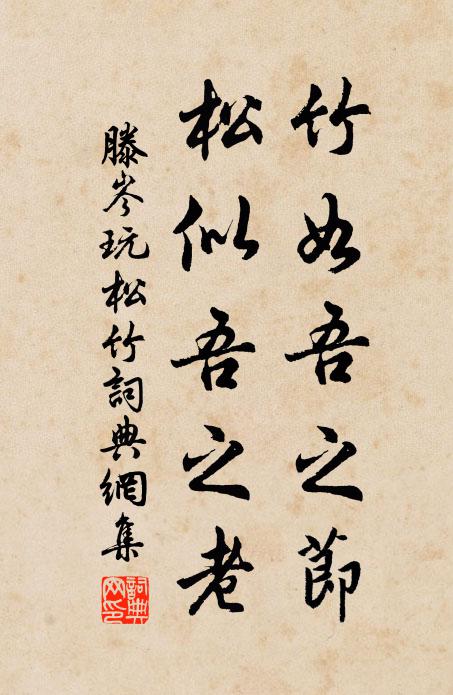 竹如吾之節
松似吾之老
滕岑玩松竹詞典網集
詞典網印